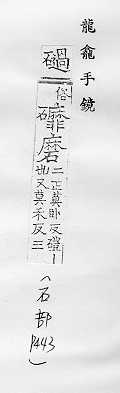 龍龕手鏡
俗䃺磨二正莫卧反磑丨
也又莫禾反三
(石部 P443)